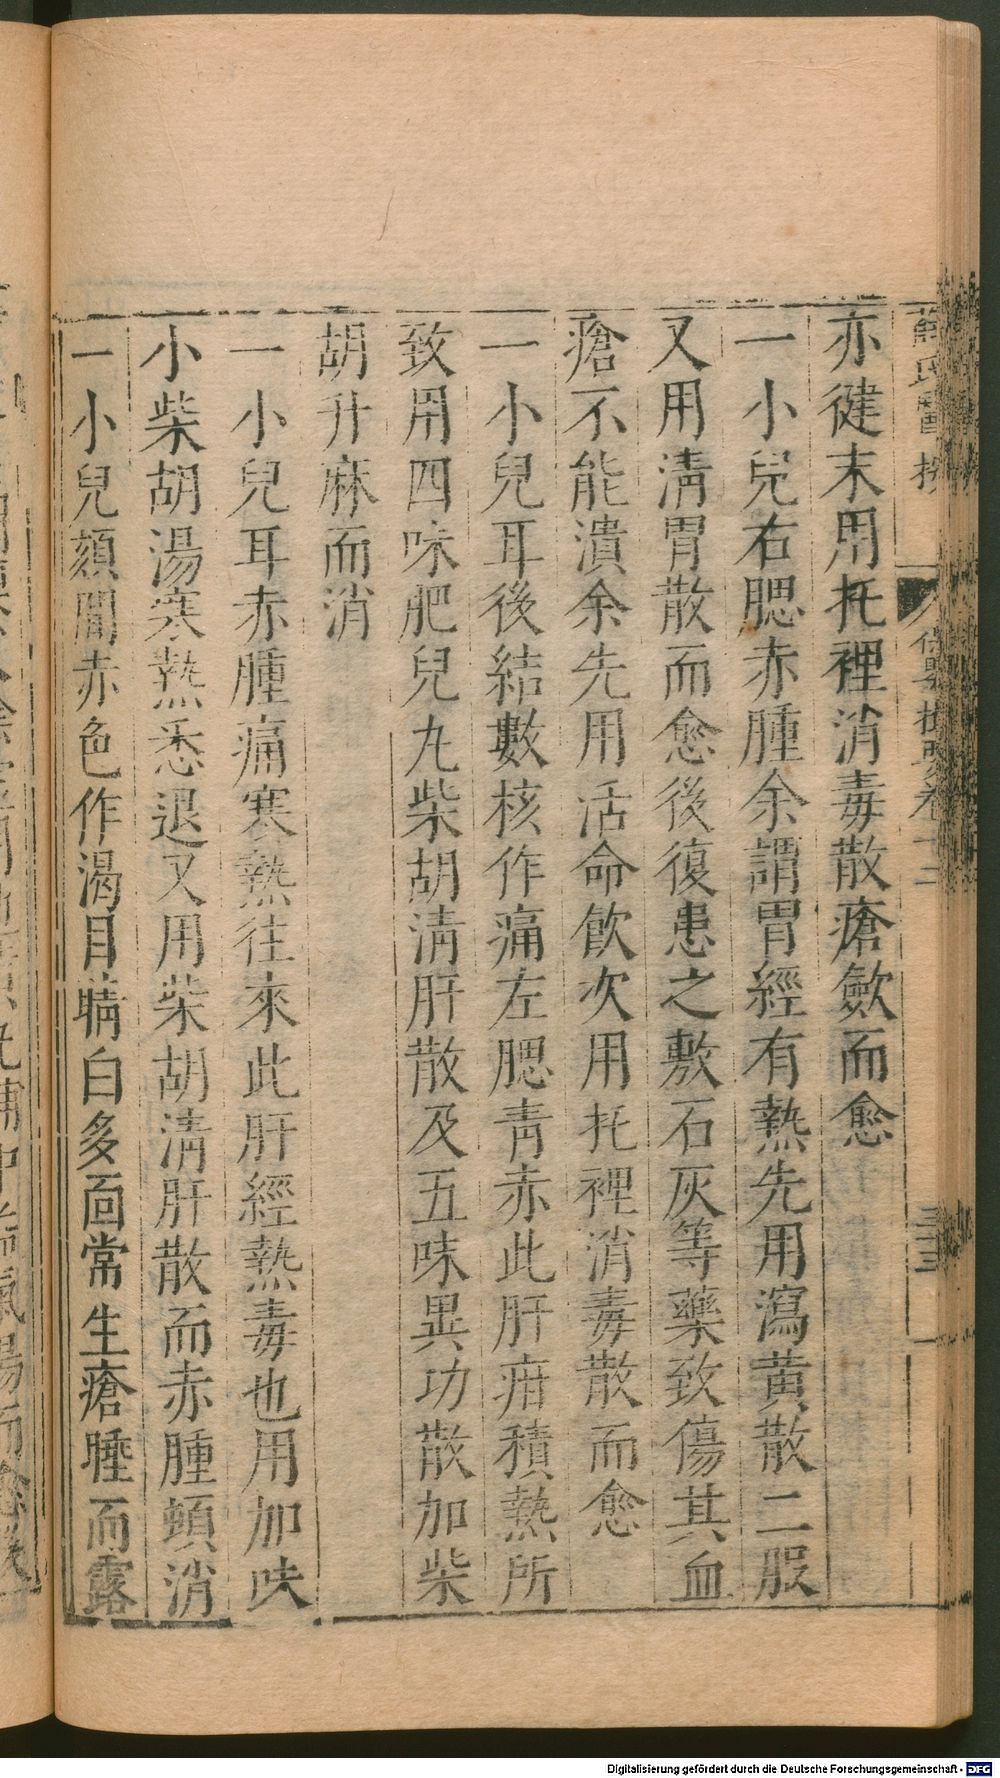 亦健末用托裡消毒散瘡歛而愈
一小兒右腮赤腫余謂胃經有熱先用瀉黄散二服
又用淸胃散而愈後復患之敷石灰等藥致傷其血
瘡不能潰余先用活命飮次用托裡消毒散而愈
一小兒耳後結數核作痛左腮靑赤此肝疳積熱所
致用四味肥兒丸柴胡淸肝散及五味異功散加柴
胡升麻而消
一小兒耳赤腫痛寒熱往來此肝經熱毒也用加味
小柴胡湯寒熱悉退又用柴胡淸肝散而赤腫頓消
一小兒頦間赤色作渴目睛白多面常生瘡睡而露
Digitalisierung gefördert durch die Deutsche Forschungsgemeinschaft - DFG